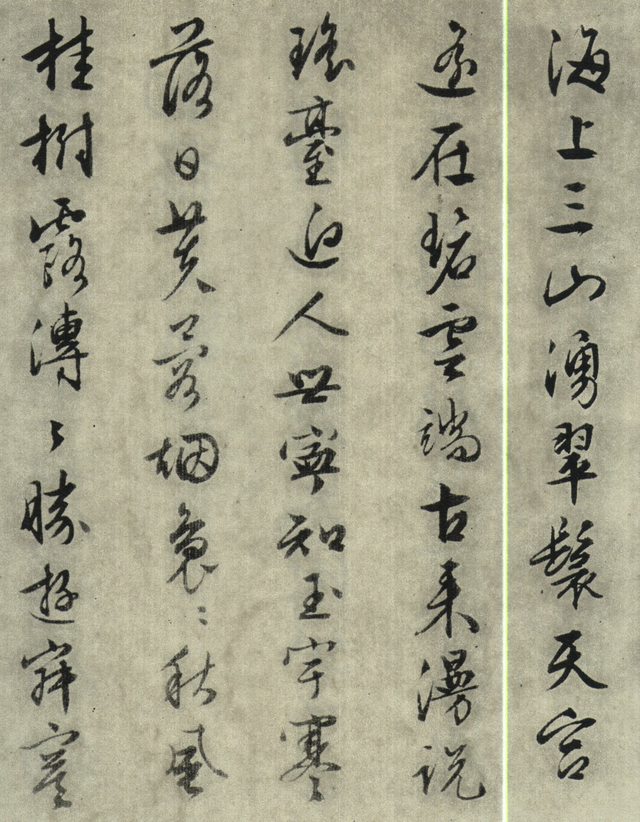 海上三山湧翠鬟天宮
遙在碧雲端古來漫說
瑤臺迥人世寧知玉宇寒
落日芙蓉烟裊〻秋風
桂樹露漙〻勝遊寂寞